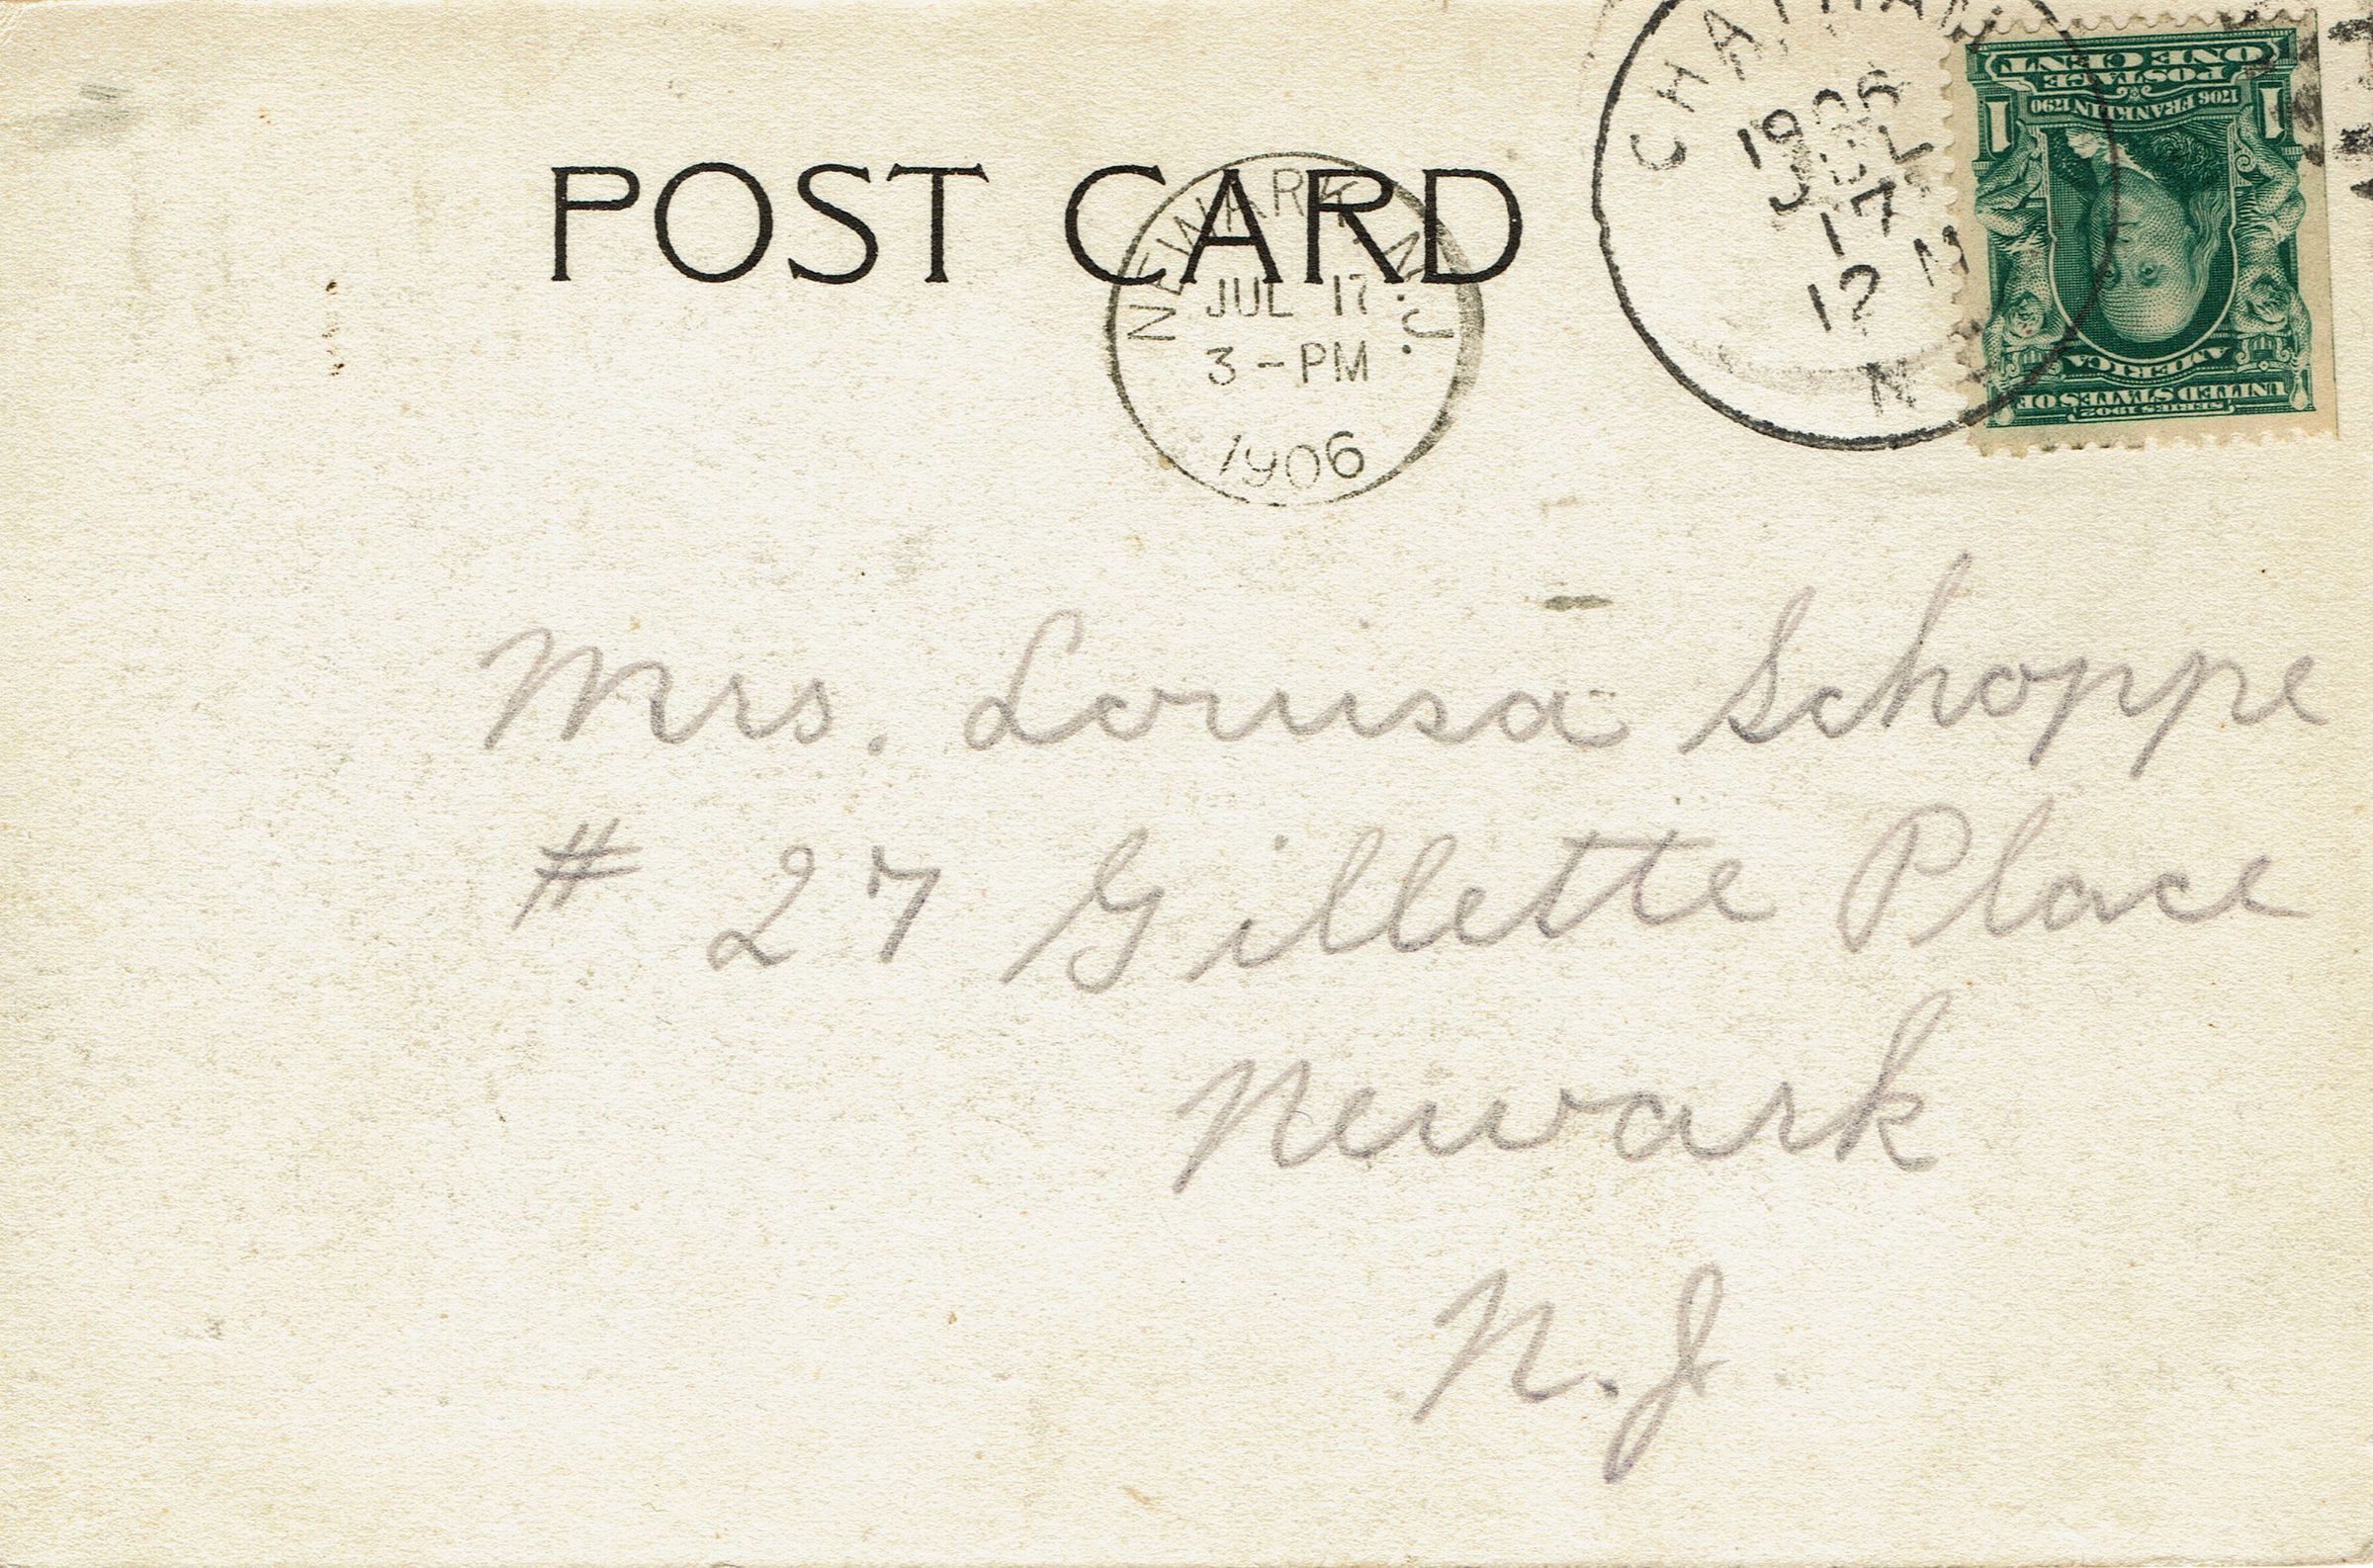 POST CARD
NEWARK, N.J.
JUL 17
3 - PM
1906
CHATHAM
1906
JUL
17
12 M
N
ONE CENT
POSTAGE
1706 FRANKLIN 1790
1 1
UNITED STATES OF
AMERICA
SERIES 1902
Mrs. Louisa Schoppe
# 27 Gillette Place
Newark
N.J.